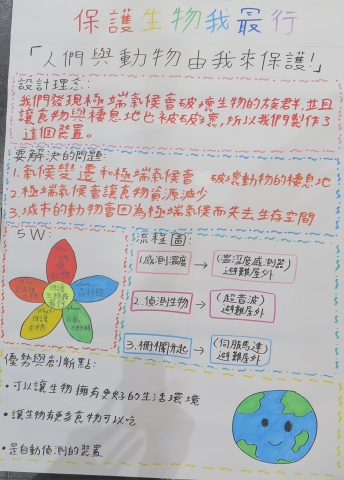 保護生物我最行
「人們與動物由我來保護!」
設計理念:
我們發現極端氣候會破壞生物的族群,並且
讓食物與棲息地也被破壞,所以我們製作了
這個裝置。
要解決的問題:
1.氣候變遷和極端氣候會 破壞動物的棲息地
2.極端氣候會讓食物資源減少
3.城市的動物會因為極端氣候而失去生存空間
5W:
保護
生物我
最行
保護
生物
流程圖:
1.感測溫度 → (溫溼度感測器)
避難屋外
2.偵測生物 → (超音波)
避難屋外
3.柵欄升起 → (伺服馬達)
避難屋外
優勢與創新點:
•可以讓生物擁有更好的生活環境
•讓生物有更多食物可以吃
•是自動偵測的裝置